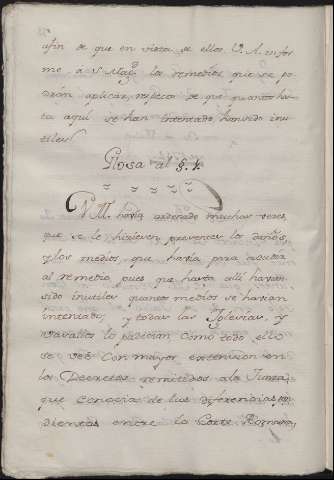 afin de que en vista de ellos V. A. infor
me a S. Mag.d los remedios que se po
drán aplicar, respecto de que quantos has
ta aquí se han intentado, han sido inu
tiles.
Glosa al §. 1.
S. M. havia ordenado muchas veces,
que se le hiciesen presentes los daños,
y los medios, que havia para acudir
al remedio, pues que hasta allí havian
sido inutiles quantos medios se havian
intentado, y todas las Iglesias, y
Vasallos lo padecian como todo ello
se vee con mayor extension en
los Decretos remitidos a la Junta,
que conocia de las diferencias pen
dientes entre la Corte Romana,